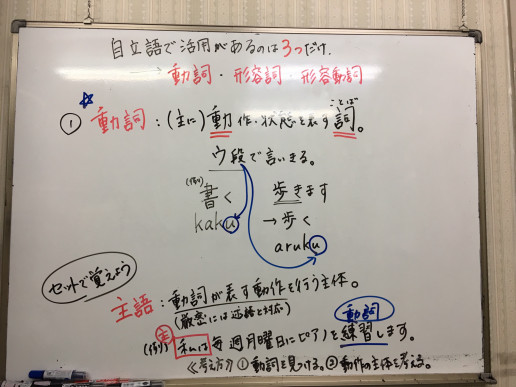 自立語で活用があるのは3つだけ.
動詞・形容詞・形容動詞
① 動詞:(主に)動作・状態を表す詞。
ことば
ウ段で言いきる。
(例) 書く 歩きます
kaku →歩く
aruku
セットで覚えよう
主語:動詞が表す動作を行う主体。
(厳密には述語と対応)
主 動詞
(例) 私は毎週月曜日にピアノを練習します。
≪考え方≫ ①動詞を見つける。②動作の主体を考える。